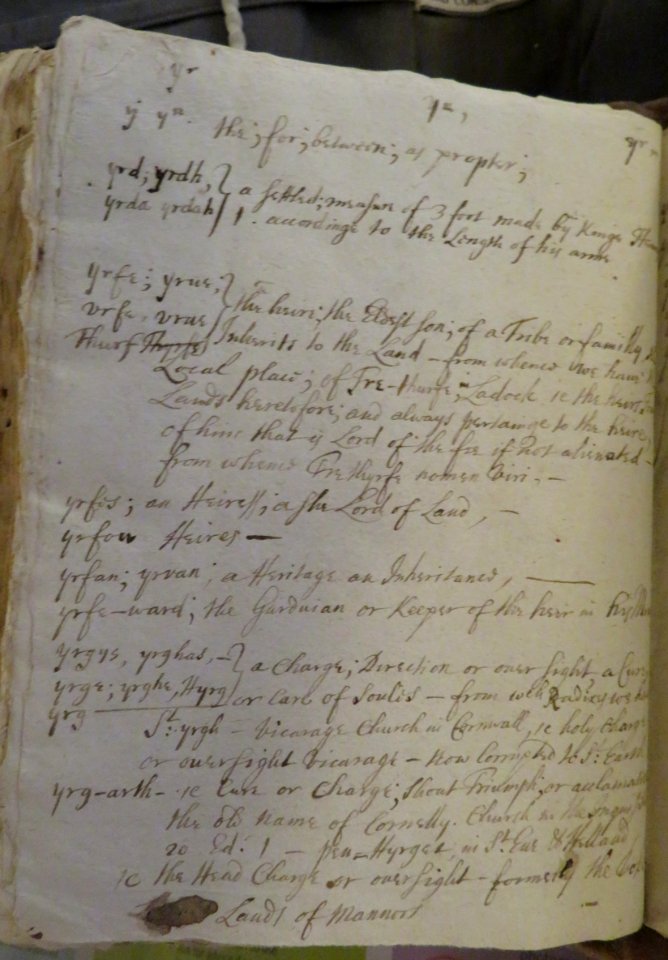 yr yr, yr
y yn. the; for; between; as propter;
yrd; yrdh, } a settled; measure of 3 foot made by Kinge
yrda yrdah } 1. accordinge to the Length of his arme
yrfe; yrue, } the heire; the Eldest son; of a Tribe or familly
vrfe, vrue } Inherits to the Land – from whence wee have
Thurf Thyrfe Local place; of Tre-thurfe in Ladock ie the heirs
Lands heretofore; and always pertainge to the heire,
of him that is Lord of the fee if Not alienated –
from whence Trethyrfe nomen Viri. –
yrfes; an Heiress; a she Lord of Land, –
yrfou Heires –
yrfan; yrvan; a Heritage an Inheritance, –
yrfe-ward; the Garduian or Keeper of the heir in his
yrgys, yrghas, – } a Charge; Direction or over sight, a Cure
yrge; yrghe, Hyrg } or Care of Soulis – from wch Radix we
yrg St. yrgh – Vicarage Church in Cornwall, ie holy Charge
or oversight Vicarage – Now Corrupted to St. Earth
yrg-arth – ie Cure or Charge; shout Triumph, or
the old name of Cornelly. Church in the
20 Ed: 1 – pen=Hyrget, in St. Eue & Helland
ie the Head Charge or oversight – formerly the
Lands of Mannors